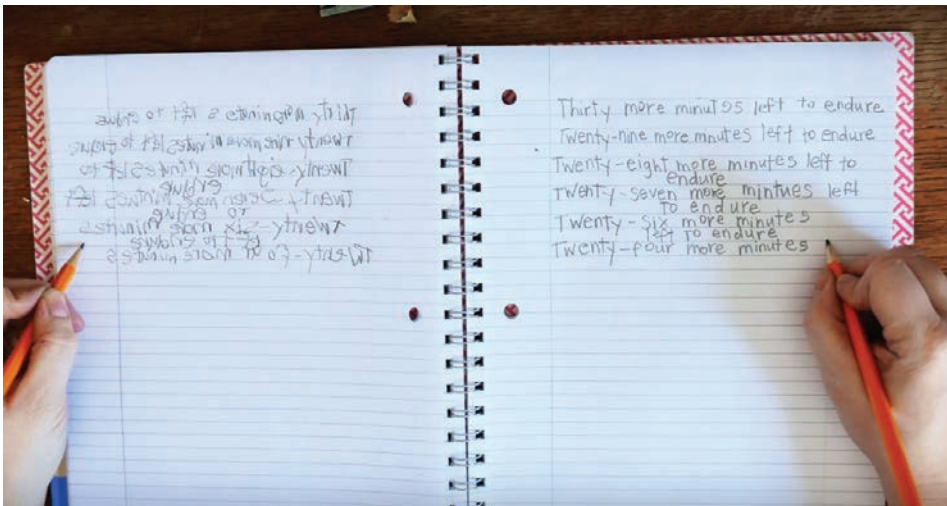 Thirty minutes left to endure
Twenty nine more minutes left to endure
Twenty-eight more minutes left to
endure
Twenty seven more minutes left
to endure
Twenty-six more minutes
left to endure
Twenty-four more minutes
Thirty more minutes left to endure
Twenty-nine more mnutes left to endure
Twenty-eight more minutes left to
endure
Twenty-seven more mintues left
to endure
Twenty-six more minutes
left to endure
Twenty-four more minutes